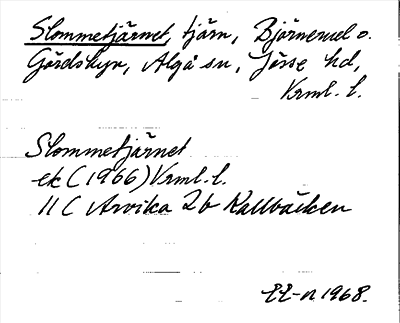 Slommetjärnet, tjärn, Björnerud o.
Gördsbyn, Älgå sn, Jösse hd,
Vrml. l.
Slommetjärnet
ek (1966) Vrml. l.
11 C Arvika 2b Kallbäcken
EE-n 1968.